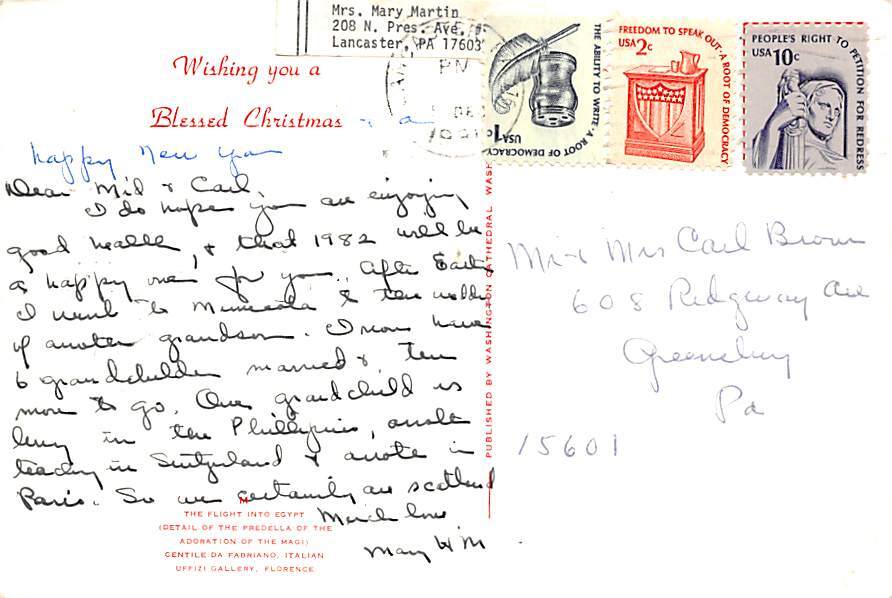 Mrs. Mary Martin
208 N. Pres. Ave.
Lancaster, PA 17603
PM
DE
THE ABILITY TO WRITE · A ROOT OF DEMOCRACY
USA 1c
FREEDOM TO SPEAK OUT · A ROOT OF DEMOCRACY
USA 2c
PEOPLE'S RIGHT TO PETITION FOR REDRESS
USA 10c
Wishing you a
Blessed Christmas
+ a
happy New Year
Dear Mid & Carl,
I do hope you are enjoying
good health, & that 1982 will be
a happy one for you. After Easter
I went to Minnesota to the wedding
of another grandson. I now have
6 grandchildren married & ten
more to go. One grandchild is
living in the Phillipines, another
teaching in Switzerland & another in
Paris. So we certainly are scattered
Much love
Mary H M.
THE FLIGHT INTO EGYPT
(DETAIL OF THE PREDELLA OF THE
ADORATION OF THE MAGI)
GENTILE DA FABRIANO, ITALIAN
UFFIZI GALLERY, FLORENCE
PUBLISHED BY WASHINGTON CATHEDRAL WASH
Mr & Mrs Carl Brown
608 Ridgeway Ave
Greensburg
Pa
15601